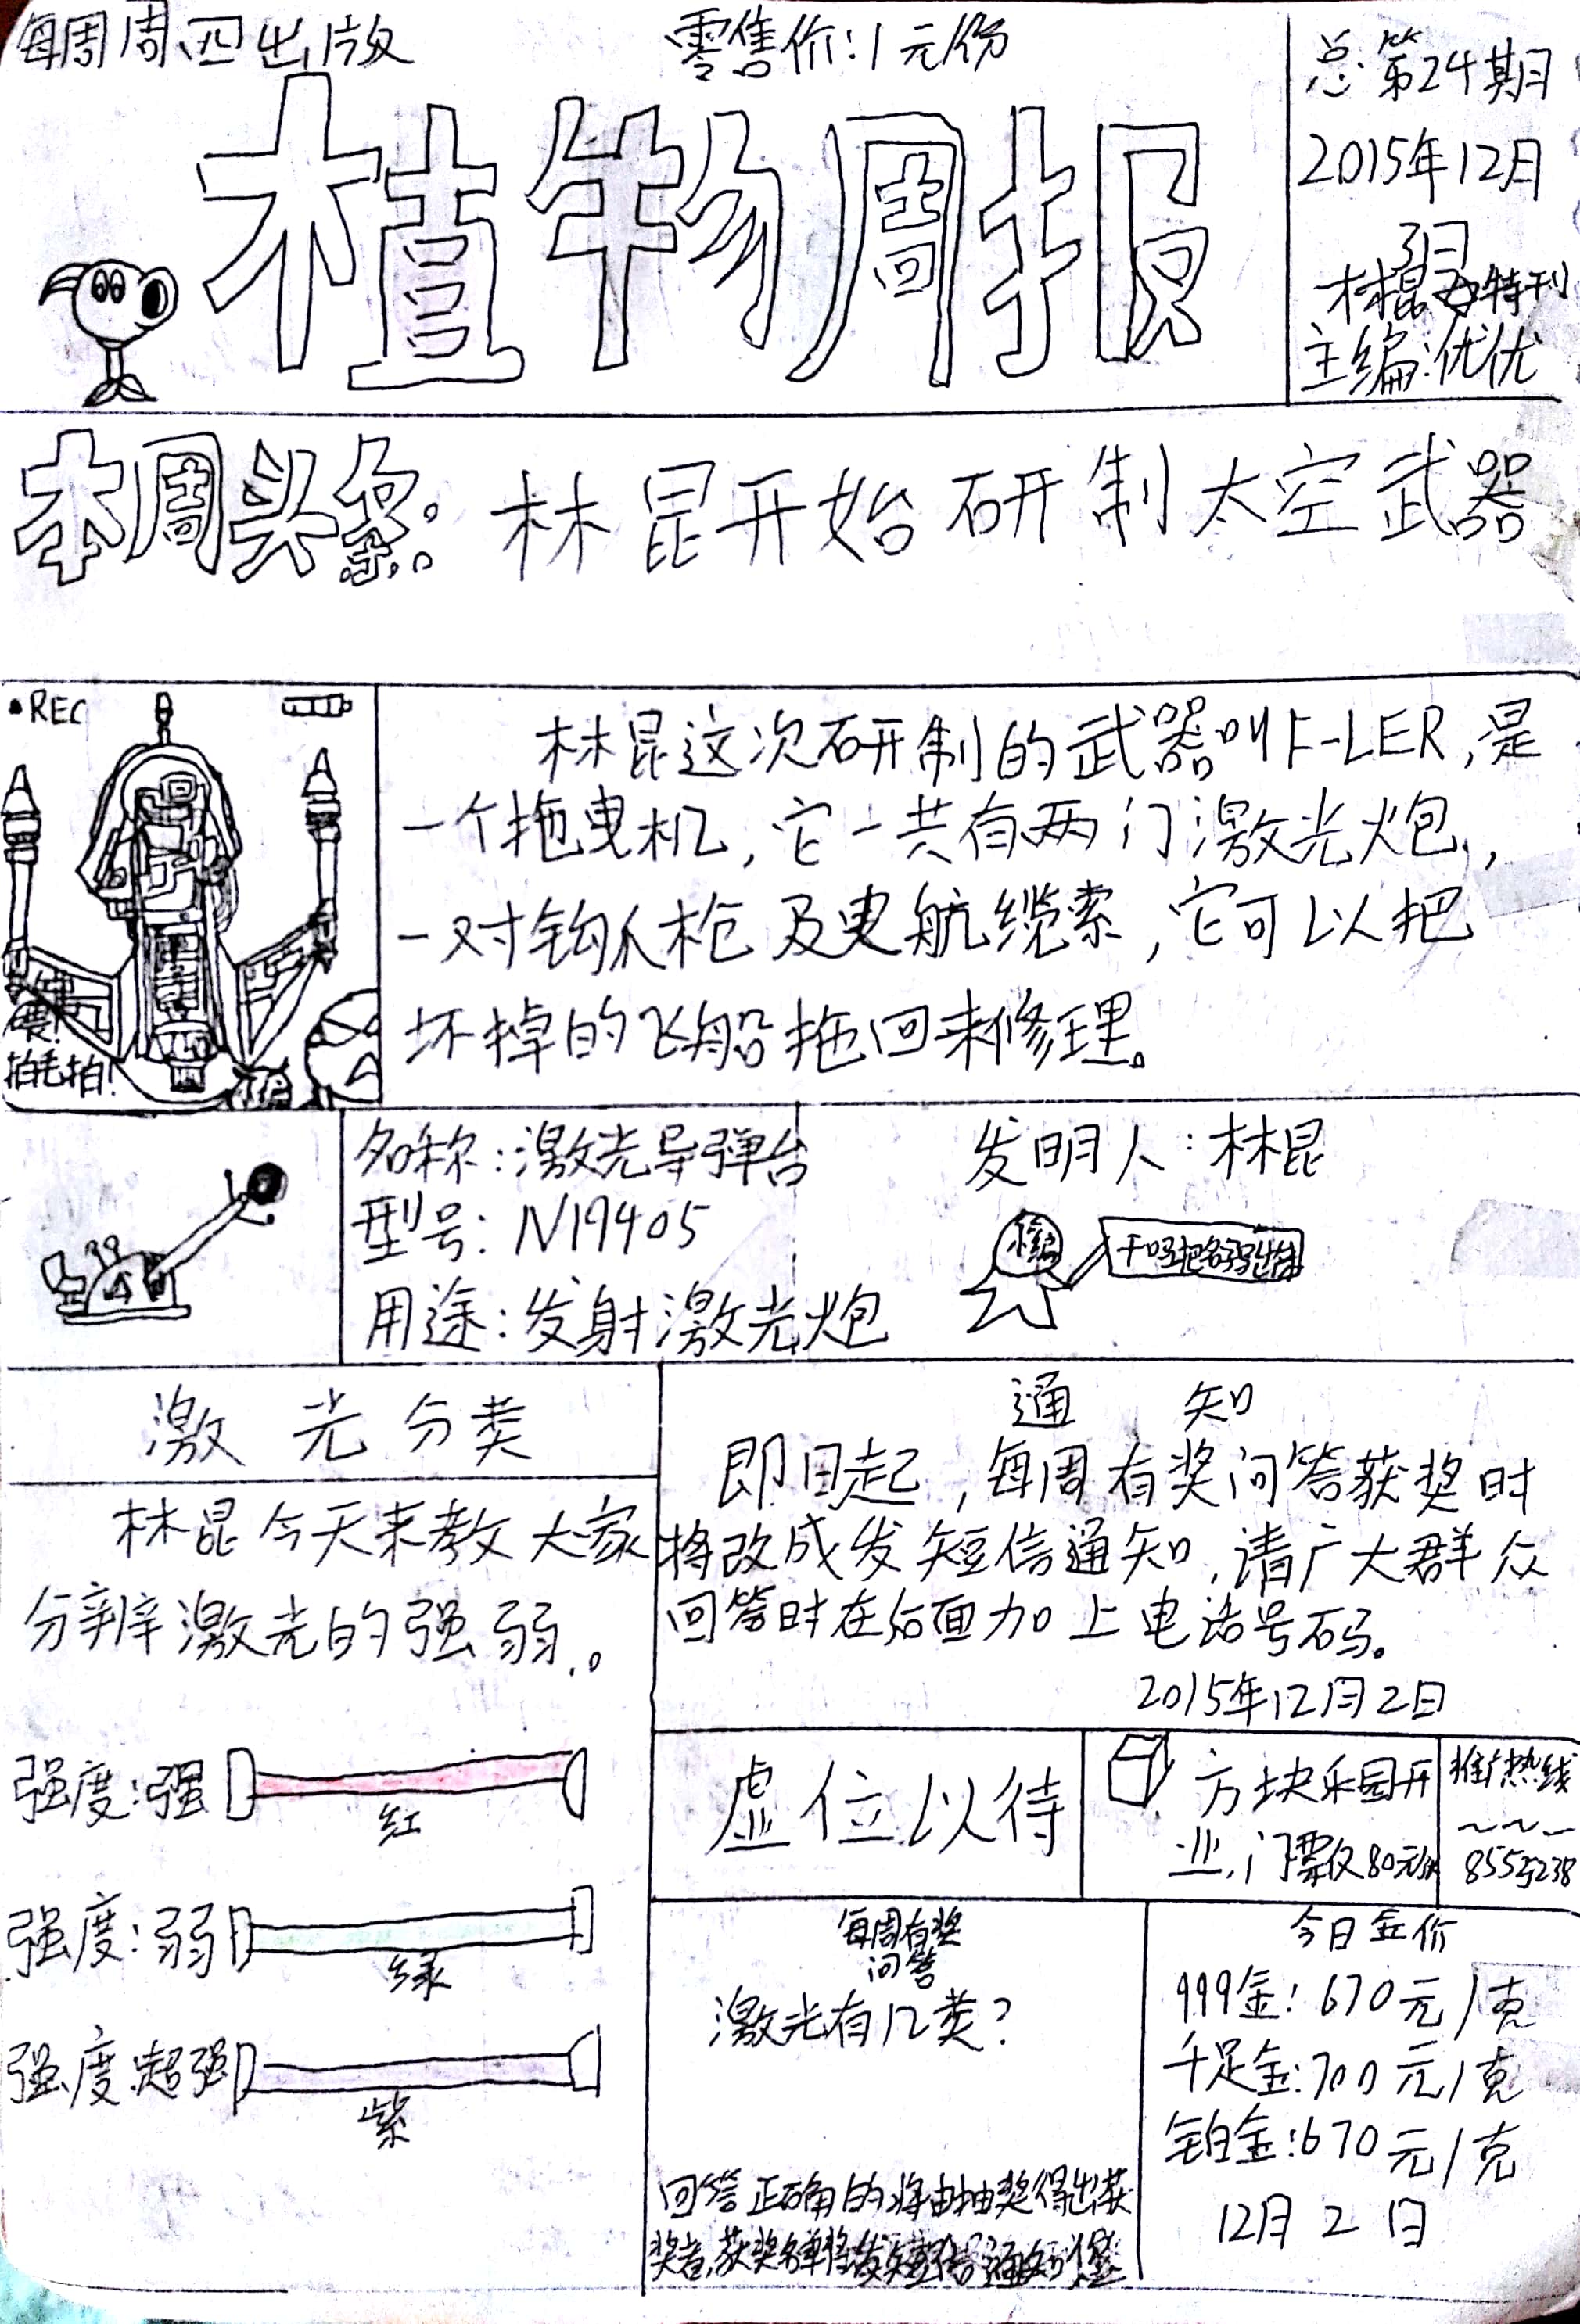 每周周四出版
零售价:1元/份
总第24期
2015年12月
3日
林昆特刊
主编:优优
植物周报
本周头条:林昆开始研制太空武器
•REC
拍毛拍!
林昆这次研制的武器叫F-LER,是
一个拖曳机,它一共有两门激光炮,
一对钩爪枪及曳航缆索,它可以把
坏掉的飞船拖回来修理。
名称:激光导弹台
型号:N19405
用途:发射激光炮
发明人:林昆
干吗把
激光分类
林昆今天来教大家
分辨激光的强弱。
强度:强
红
强度:弱
绿
强度:超强
紫
通知
即日起,每周有奖问答获奖时
将改成发短信通知,请广大群众
回答时在后面加上电话号码。
2015年12月2日
虚位以待
方块乐园开
业,门票仅80元/张
推广热线
~~~
8555238
每周有奖
问答
激光有几类?
回答正确的将由抽奖得出获
奖者,获奖名单将发短信通知
今日金价
999金:670元/克
千足金:700元/克
铂金:670元/克
12月2日